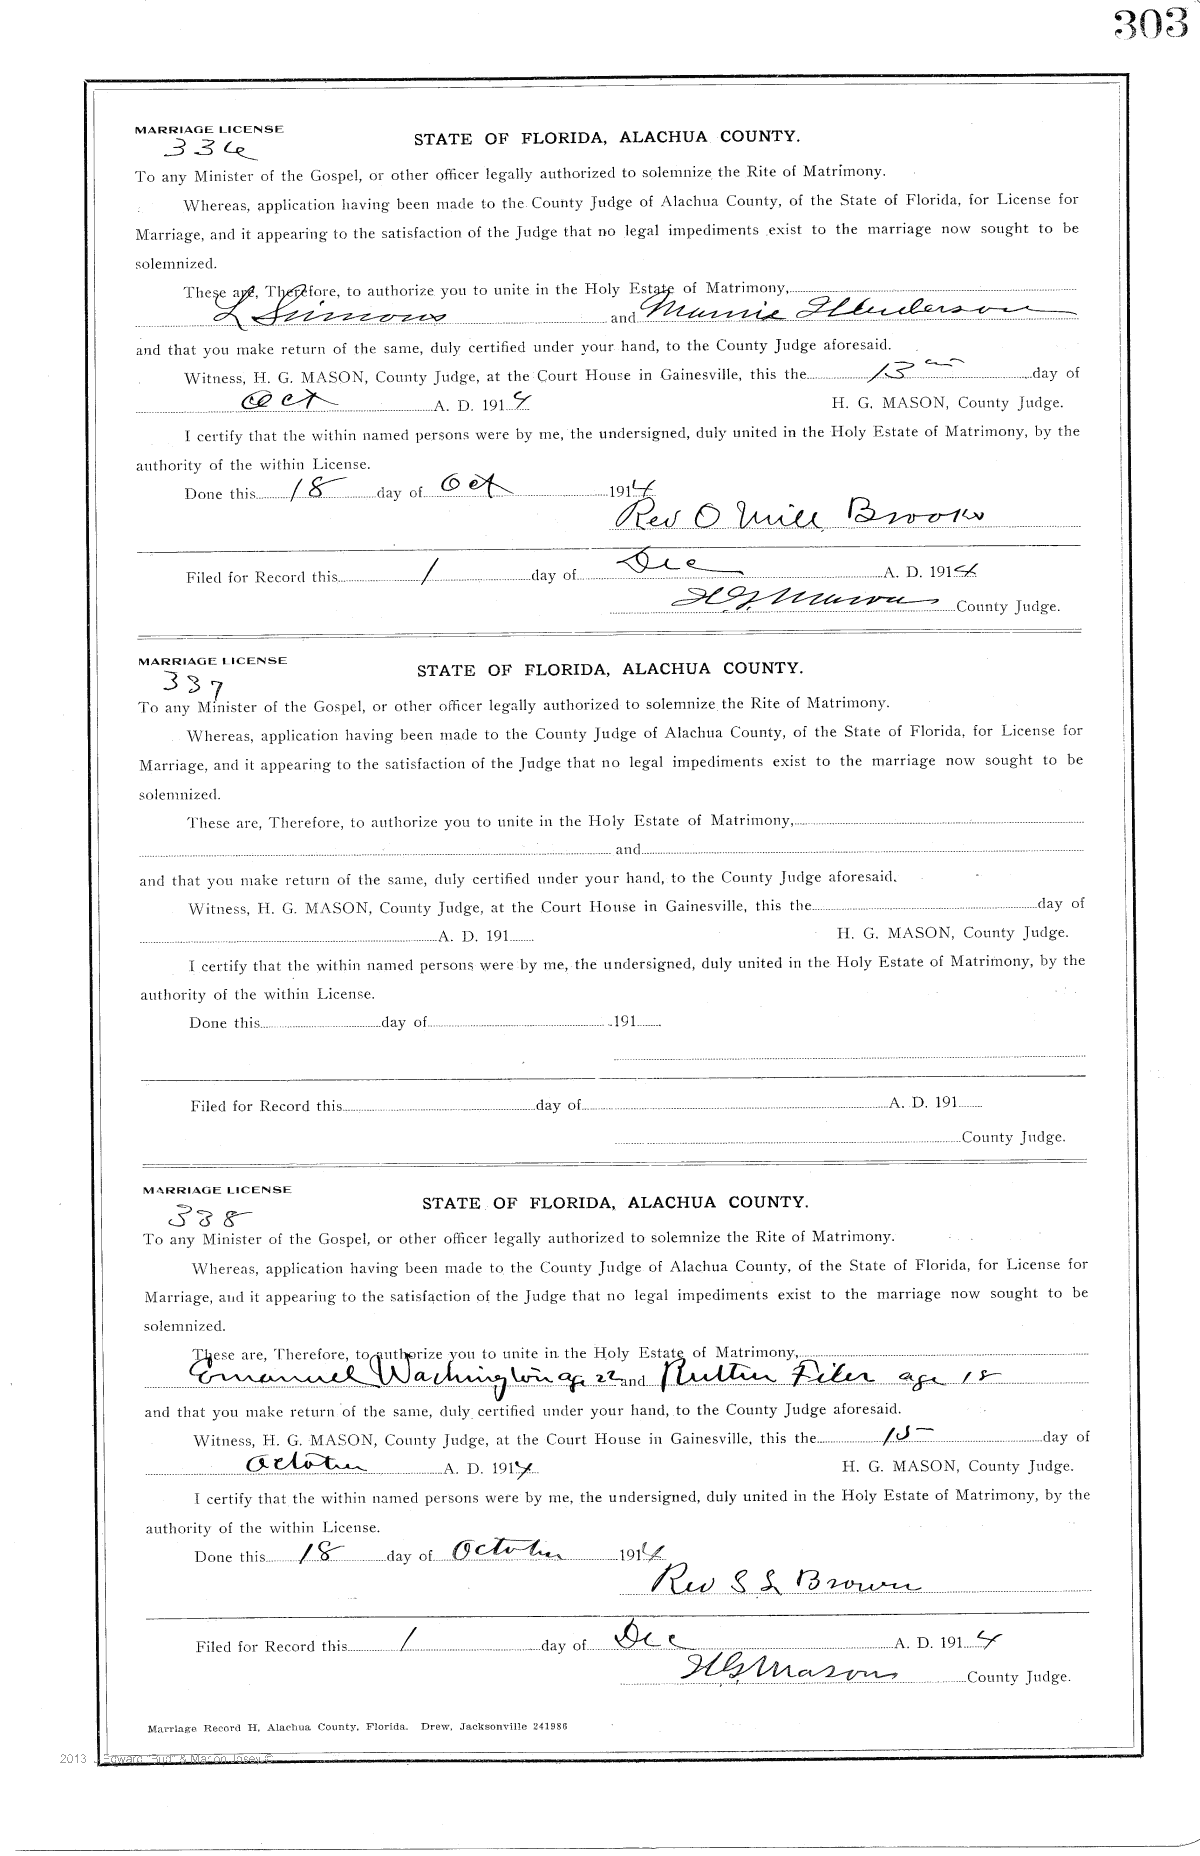 303
MARRIAGE LICENSE
336
STATE OF FLORIDA, ALACHUA COUNTY.
To any Minister of the Gospel, or other officer legally authorized to solemnize the Rite of Matrimony.
Whereas, application having been made to the County Judge of Alachua County, of the State of Florida, for License for
Marriage, and it appearing to the satisfaction of the Judge that no legal impediments exist to the marriage now sought to be
solemnized.
These are, Therefore, to authorize you to unite in the Holy Estate of Matrimony,
L Simmons and Mamie Henderson
and that you make return of the same, duly certified under your hand, to the County Judge aforesaid.
Witness, H. G. MASON, County Judge, at the Court House in Gainesville, this the 13 day of
Oct A. D. 1914 H. G. MASON, County Judge.
I certify that the within named persons were by me, the undersigned, duly united in the Holy Estate of Matrimony, by the
authority of the within License.
Done this 18 day of Oct 1914
Rev O Brooks
Filed for Record this 1 day of Dec A. D. 1914
H G Mason County Judge.
MARRIAGE LICENSE
337
STATE OF FLORIDA, ALACHUA COUNTY.
To any Minister of the Gospel, or other officer legally authorized to solemnize the Rite of Matrimony.
Whereas, application having been made to the County Judge of Alachua County, of the State of Florida, for License for
Marriage, and it appearing to the satisfaction of the Judge that no legal impediments exist to the marriage now sought to be
solemnized.
These are, Therefore, to authorize you to unite in the Holy Estate of Matrimony,
and
and that you make return of the same, duly certified under your hand, to the County Judge aforesaid.
Witness, H. G. MASON, County Judge, at the Court House in Gainesville, this the day of
A. D. 191 H. G. MASON, County Judge.
I certify that the within named persons were by me, the undersigned, duly united in the Holy Estate of Matrimony, by the
authority of the within License.
Done this day of 191
Filed for Record this day of A. D. 191
County Judge.
MARRIAGE LICENSE
338
STATE OF FLORIDA, ALACHUA COUNTY.
To any Minister of the Gospel, or other officer legally authorized to solemnize the Rite of Matrimony.
Whereas, application having been made to the County Judge of Alachua County, of the State of Florida, for License for
Marriage, and it appearing to the satisfaction of the Judge that no legal impediments exist to the marriage now sought to be
solemnized.
These are, Therefore, to authorize you to unite in the Holy Estate of Matrimony,
Emanuel Washington age 22 and Filer age 18
and that you make return of the same, duly certified under your hand, to the County Judge aforesaid.
Witness, H. G. MASON, County Judge, at the Court House in Gainesville, this the 15 day of
October A. D. 1914 H. G. MASON, County Judge.
I certify that the within named persons were by me, the undersigned, duly united in the Holy Estate of Matrimony, by the
authority of the within License.
Done this 18 day of October 1914
Rev S L Brown
Filed for Record this 1 day of Dec A. D. 1914
H G Mason County Judge.
Marriage Record H, Alachua County, Florida. Drew, Jacksonville 241986
2013 Edward "Bud" & Macon Josey ©